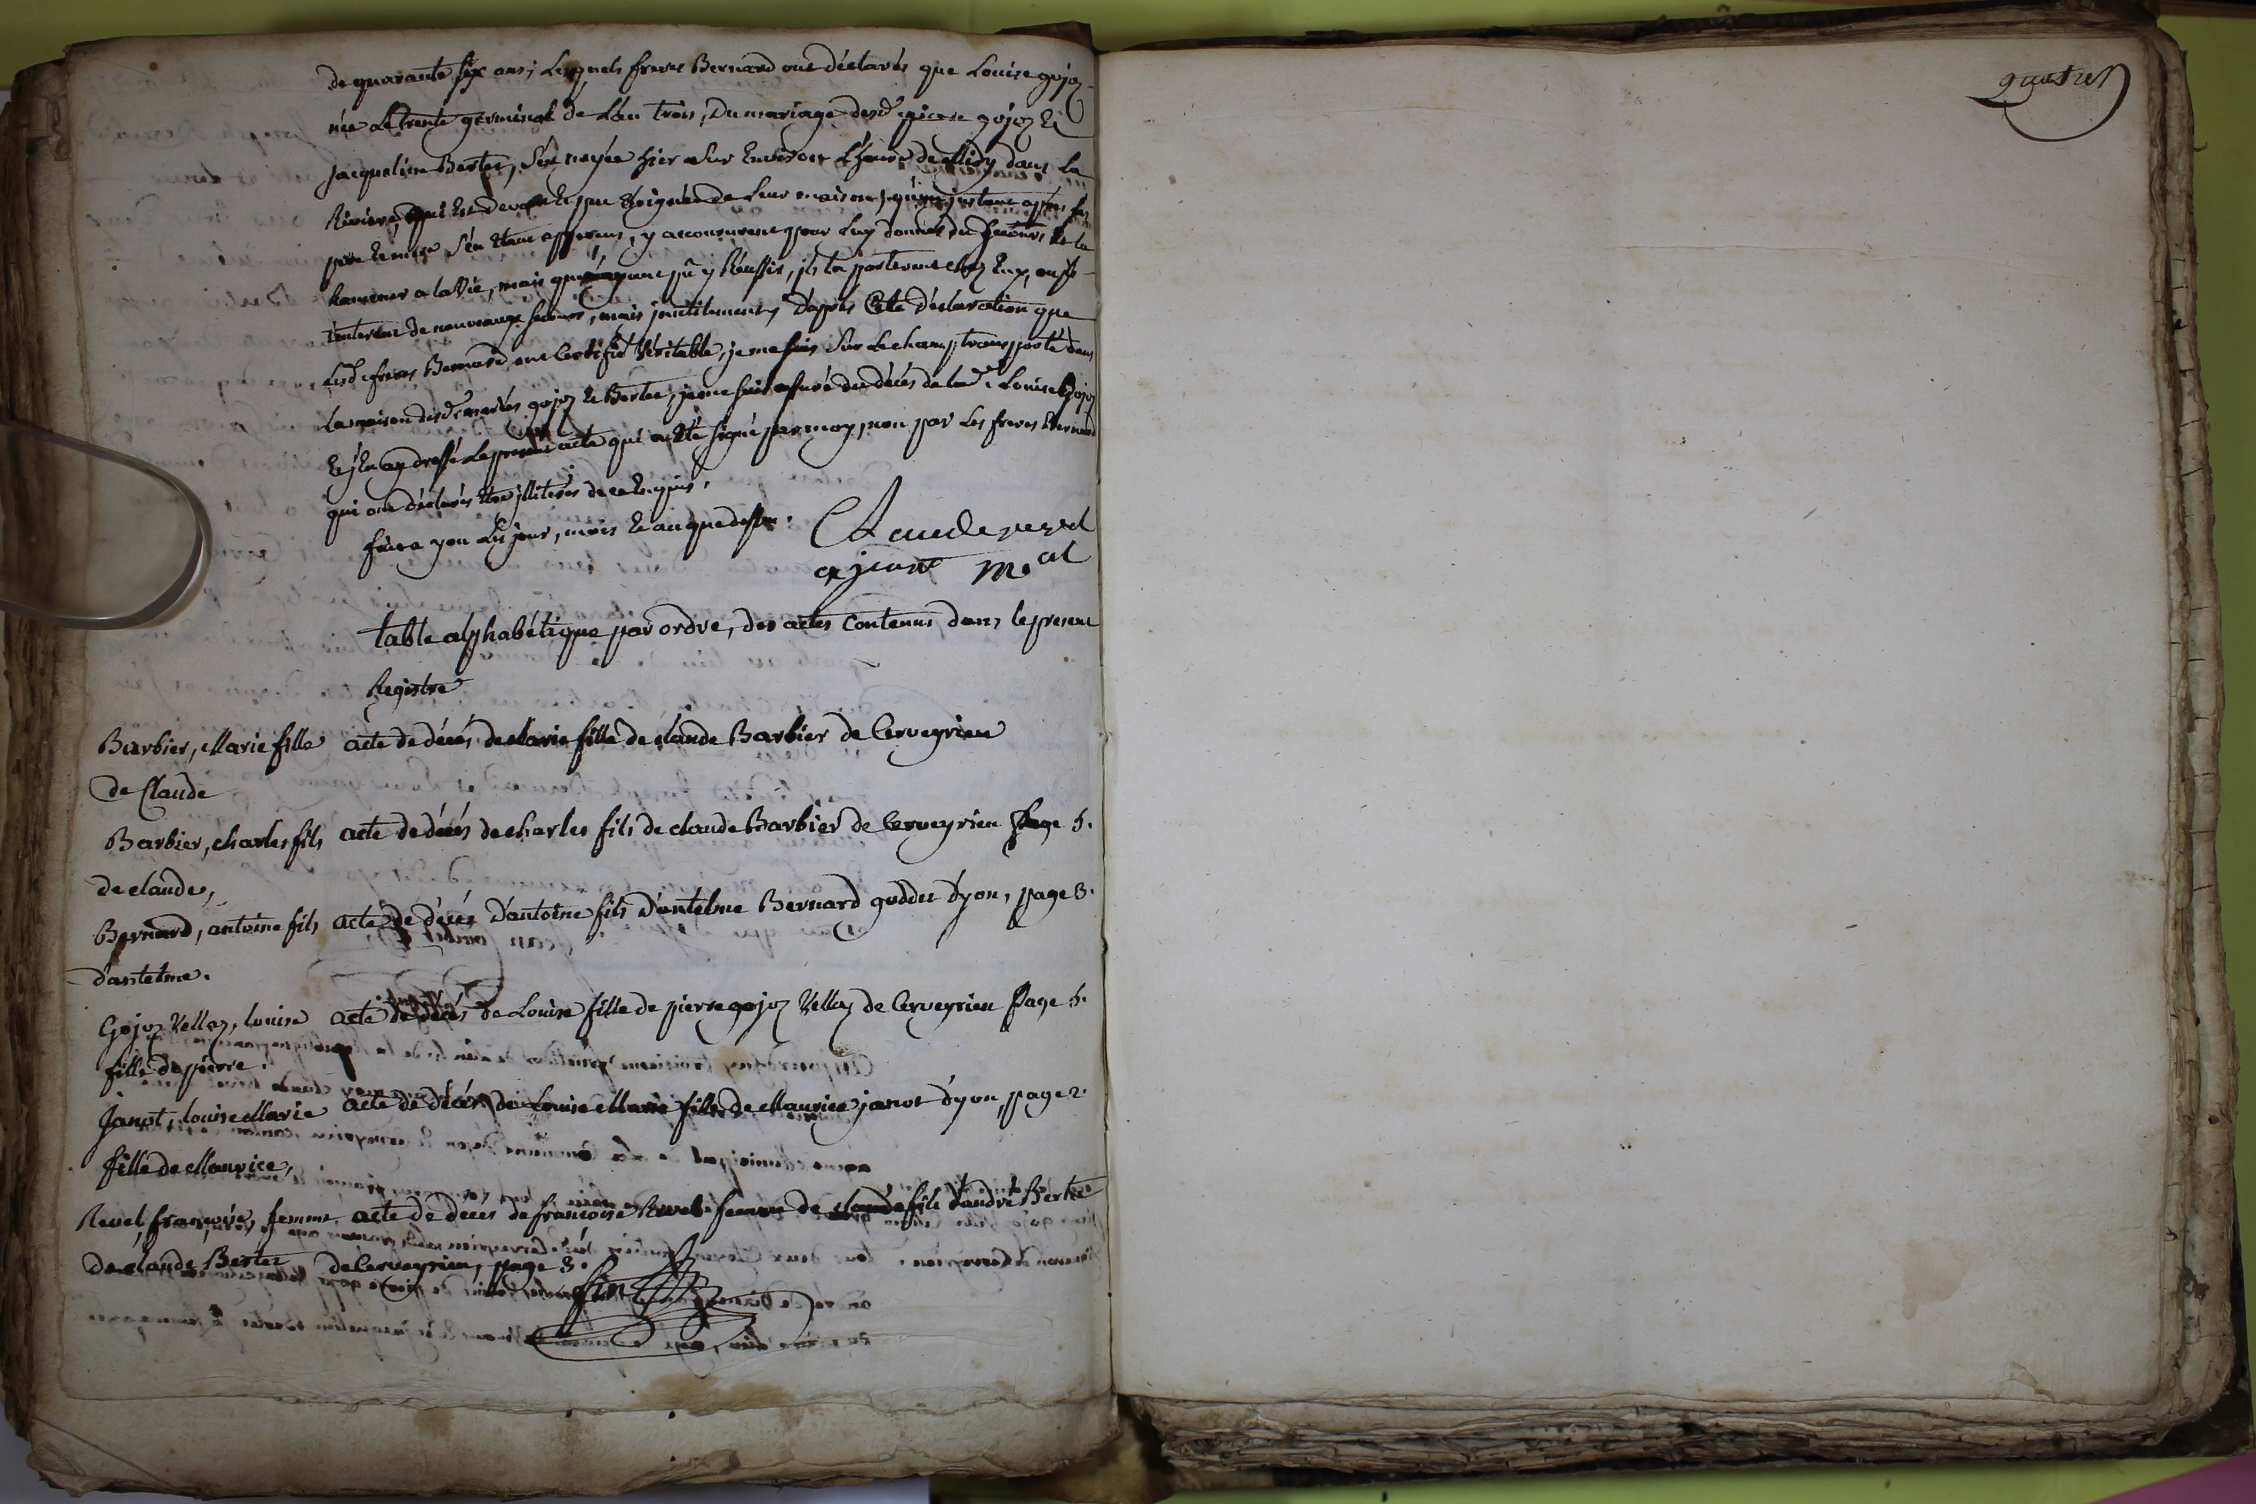 de quarante six ans; Lesquels freres Bernard ont déclarés que Louise gojoz
née Le trente germinal de L'an trois, Du mariage desd. pierre gojoz Et
jacqueline Bertet, s'est noyée hier sur Environ L'heure de Midy dans La
Riviere, qui Est devant Et peu Eloignée de Leur maison, qu'un instant après Les
pere Et mere s'en Etant apperçus, y accoururent pour Luy donner du secours Et la
Ramener a la Vie, mais que n'ayant pû y Réussir, ils la porterent chez Eux, ou ils
tenterent de nouveaux secours, mais inutilement, D'après cette déclaration que
Lesd. freres Bernard ont Certifié Véritable, je me suis sur Le champ transporté dans
La maison desd. mariés gojoz Et Bertet, je me suis assuré du décés de lad. Louise gojoz
Et j'En ay dressé Le present acte qui a Eté signé par moy, non par Les freres Bernard
qui ont déclarés Etre illiterés de ce Enquis,
fait a yon Les jour, mois Et an que dessus.
Claude revel
ajeant m.al
table alphabétique par ordre, des actes contenus dans le present
Registre
Barbier, Marie fille acte de décés de Marie fille de claude Barbier de Cerveyrieu
de Claude
Barbier, charles fils acte de décés de charles fils de claude Barbier de Cerveyrieu Page 5.
de claude,
Bernard, antoine fils acte de décés D'antoine fils D'antelme Bernard goddet d'yon, page 3.
d'antelme.
Gojoz Vellaz, louise acte de décés de Louise fille de pierre gojoz Vellaz de Cerveyrieu Page 5.
fille de pierre.
Janot, louise Marie acte de décés de Louise Marie fille de Maurice janot d'yon, page 2.
fille de Maurice,
Revel, françoise, femme acte de décés de françoise Revel femme de claude fils d'andré Bertet
de claude Bertet de Cerveyrieu, page 3.
fin